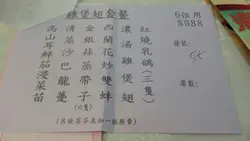 雞煲翅套餐
6位用
$988
紅燒乳鴿(三隻)
濃湯雞煲翅
西蘭花炒雙蚌
金銀蒜蒸帶子(六隻)
清蒸沙巴龍躉
高山耳鮮茄浸菜苗
(另收茶芥及加一服務費)